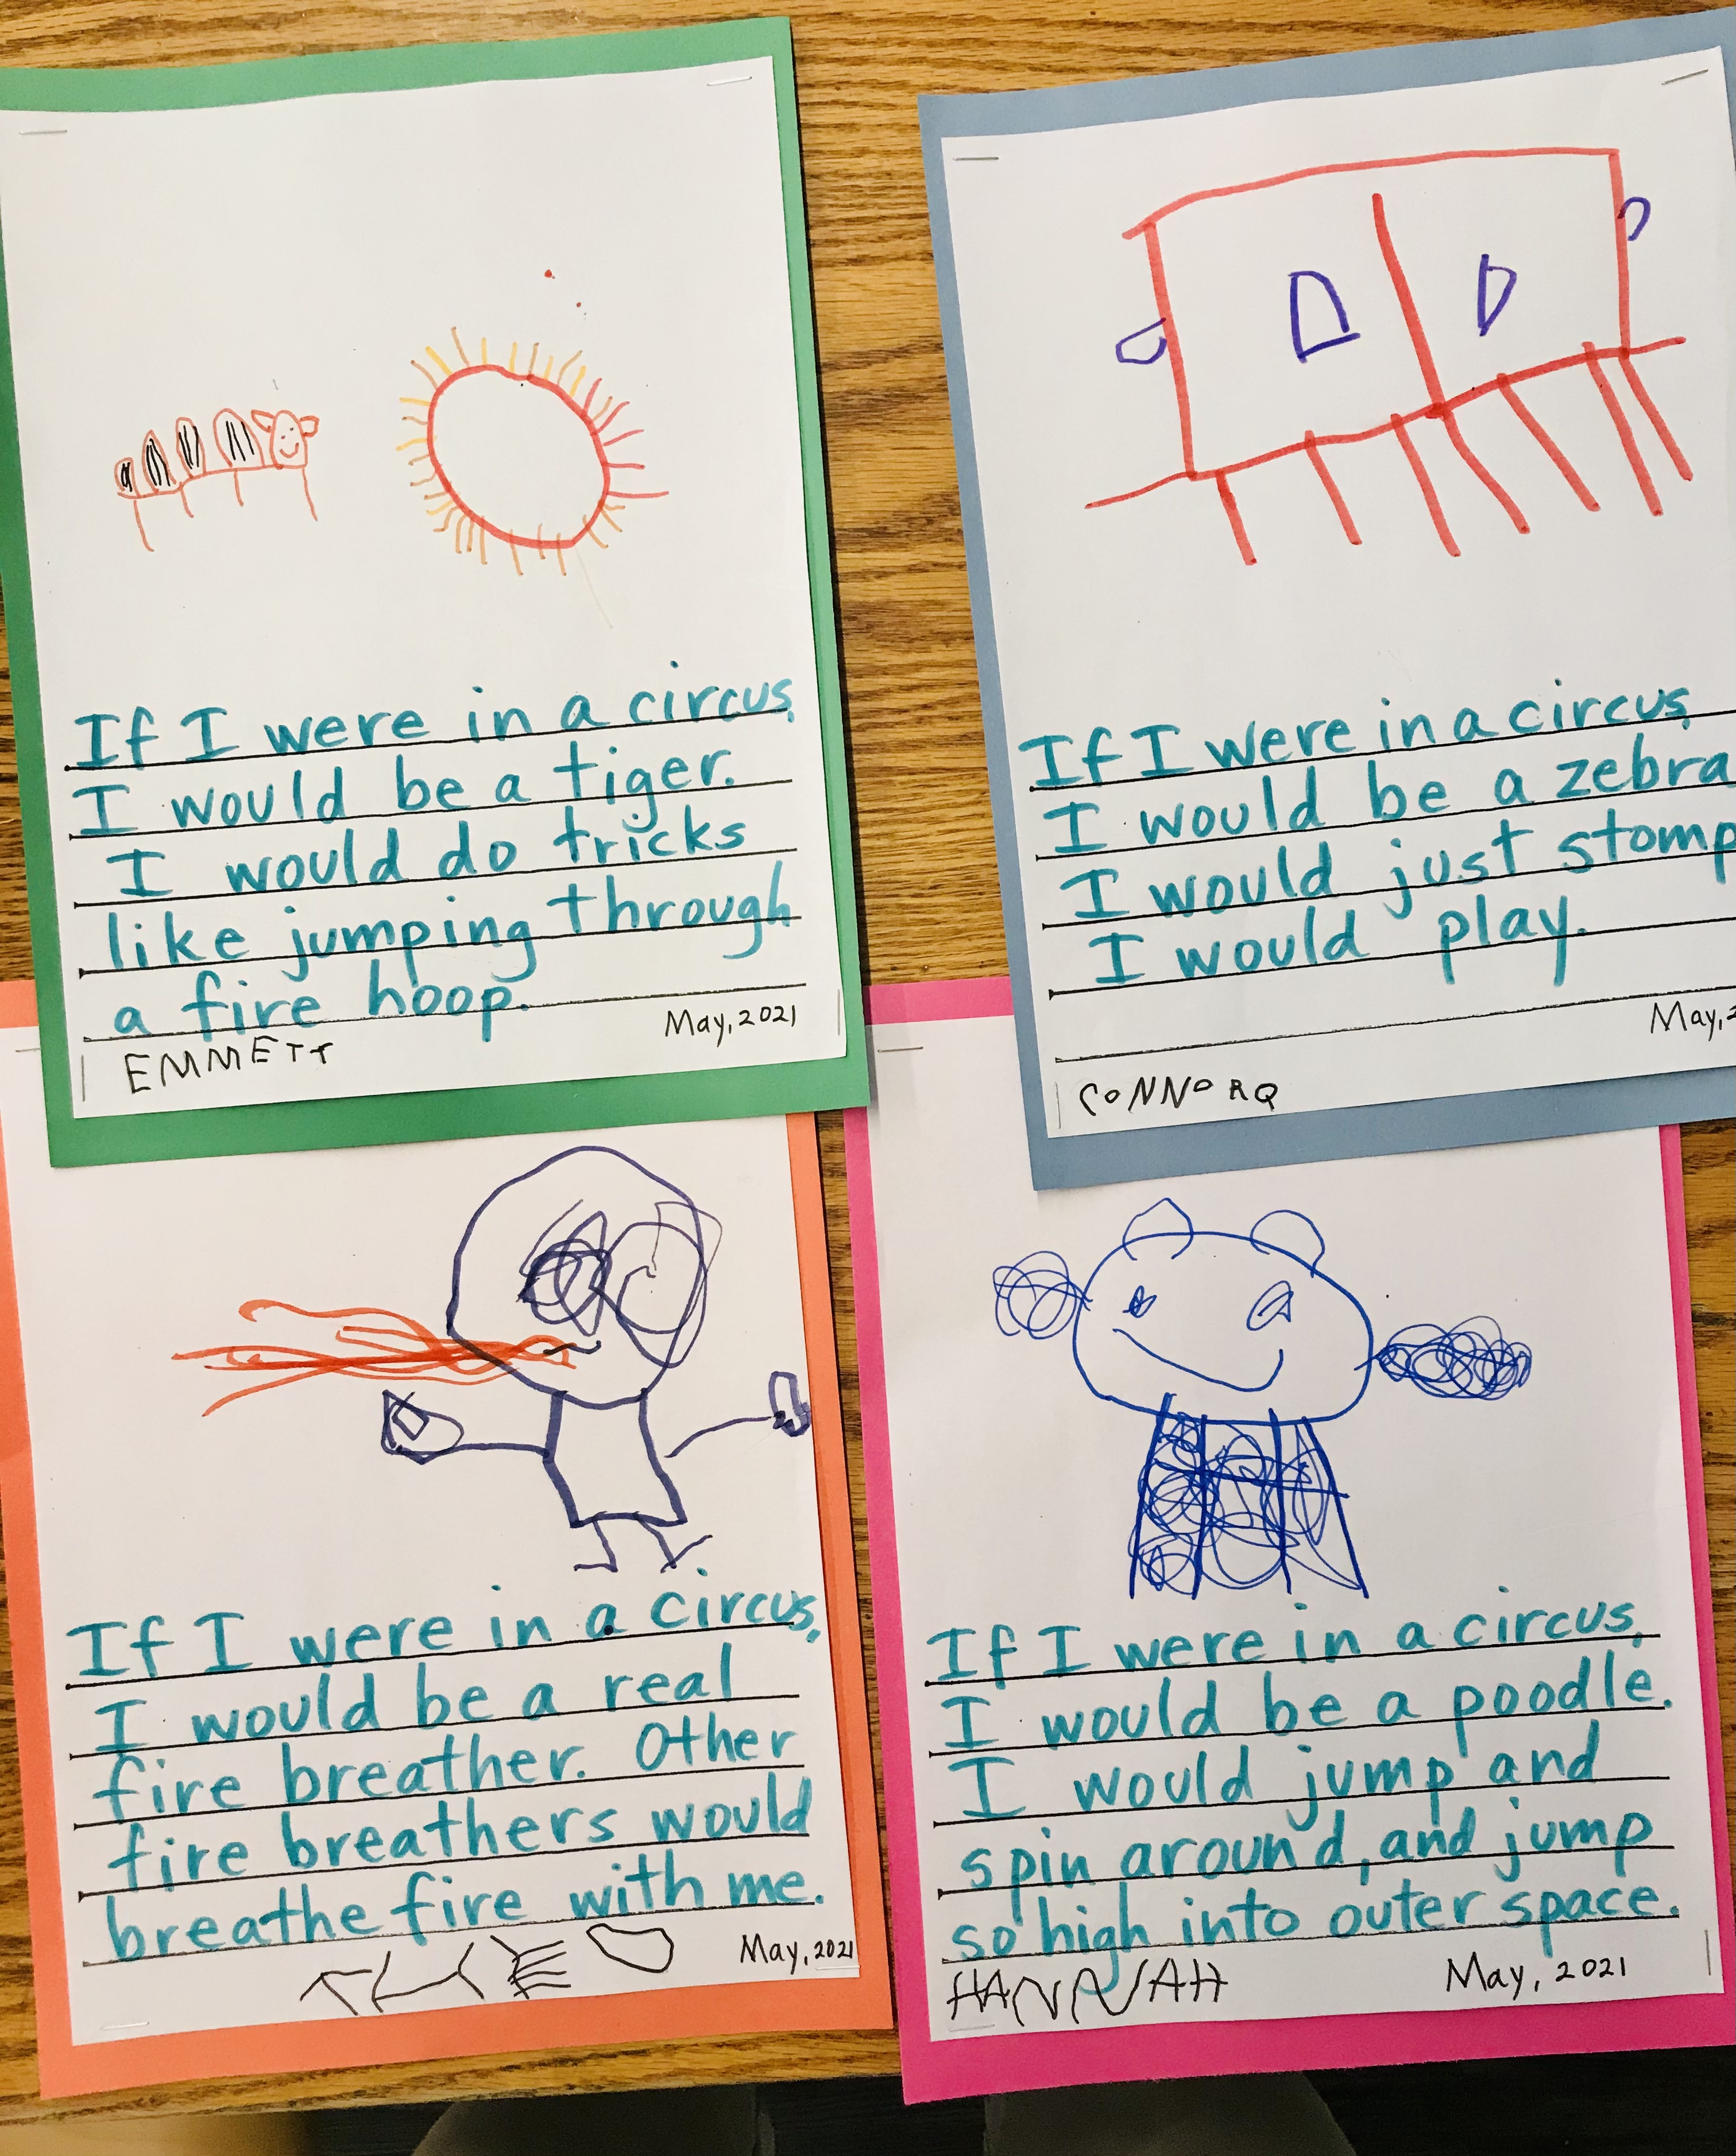 If I were in a circus,
I would be a tiger.
I would do tricks
like jumping through
a fire hoop.
May, 2021
EMMETT
If I were in a circus,
I would be a zebra
I would just stomp
I would play.
May, 2
CONNOR Q
If I were in a circus,
I would be a real
fire breather. Other
fire breathers would
breathe fire with me.
May, 2021
If I were in a circus,
I would be a poodle.
I would jump and
spin around, and jump
so high into outer space.
HANNAH
May, 2021